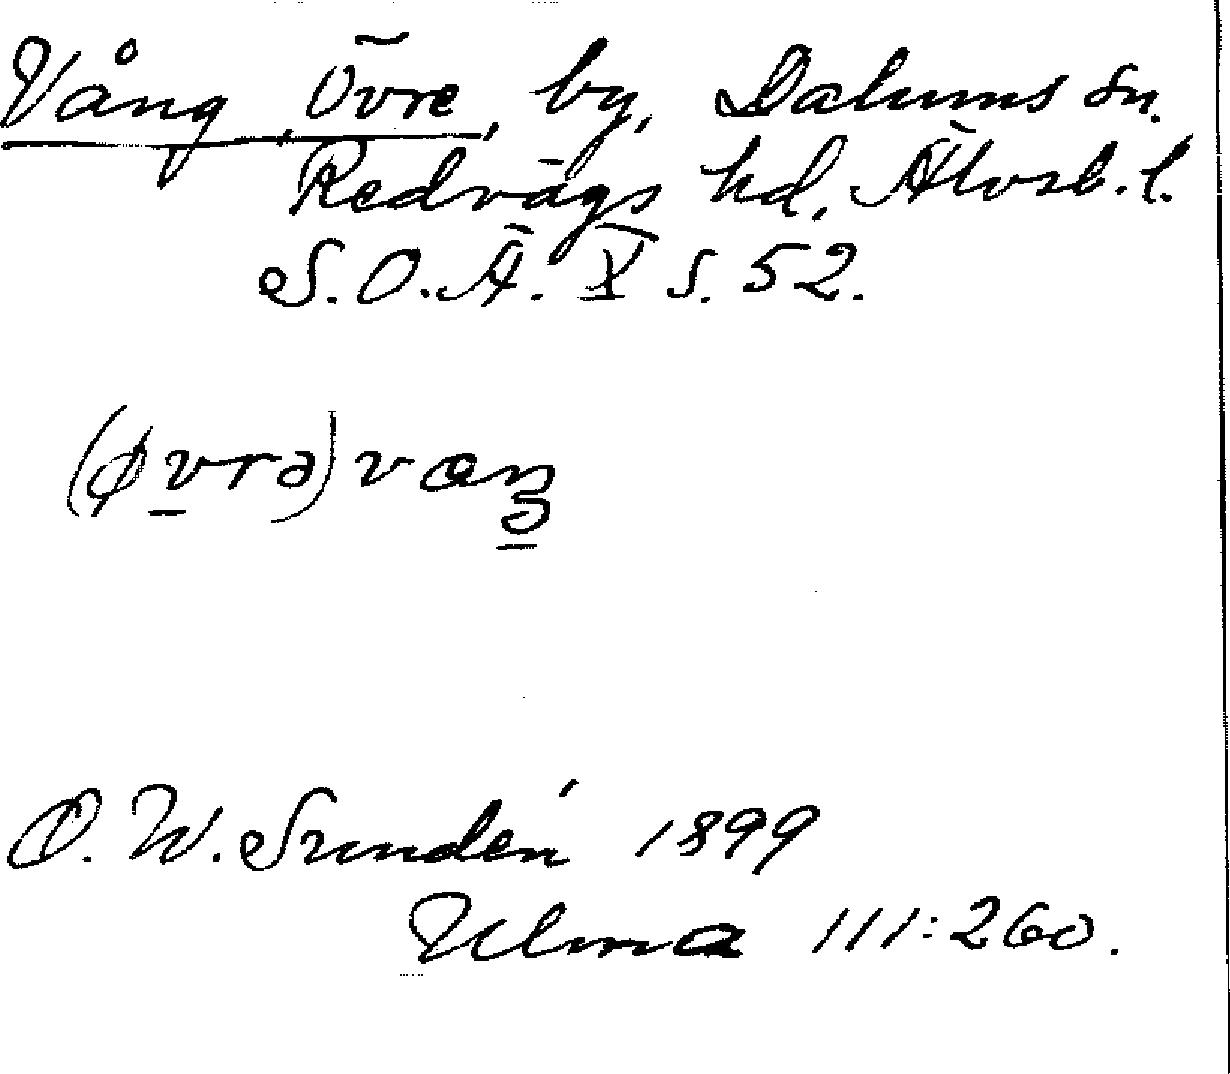 Vång, Övre, by, Dalums sn.
Redvägs hd. Älvsb. l.
S.O.Ä. X s. 52.
(øvrə)vaŋ
D. W. Sundén 1899
Ulma 111:260.